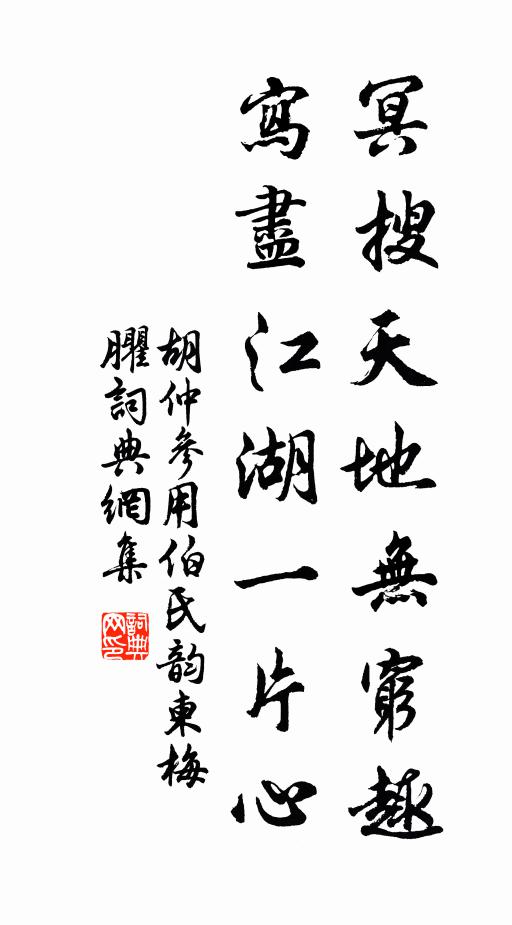 冥搜天地無窮趣
寫盡江湖一片心
胡仲參用伯氏韵東梅
臞詞典網集
詞典網印